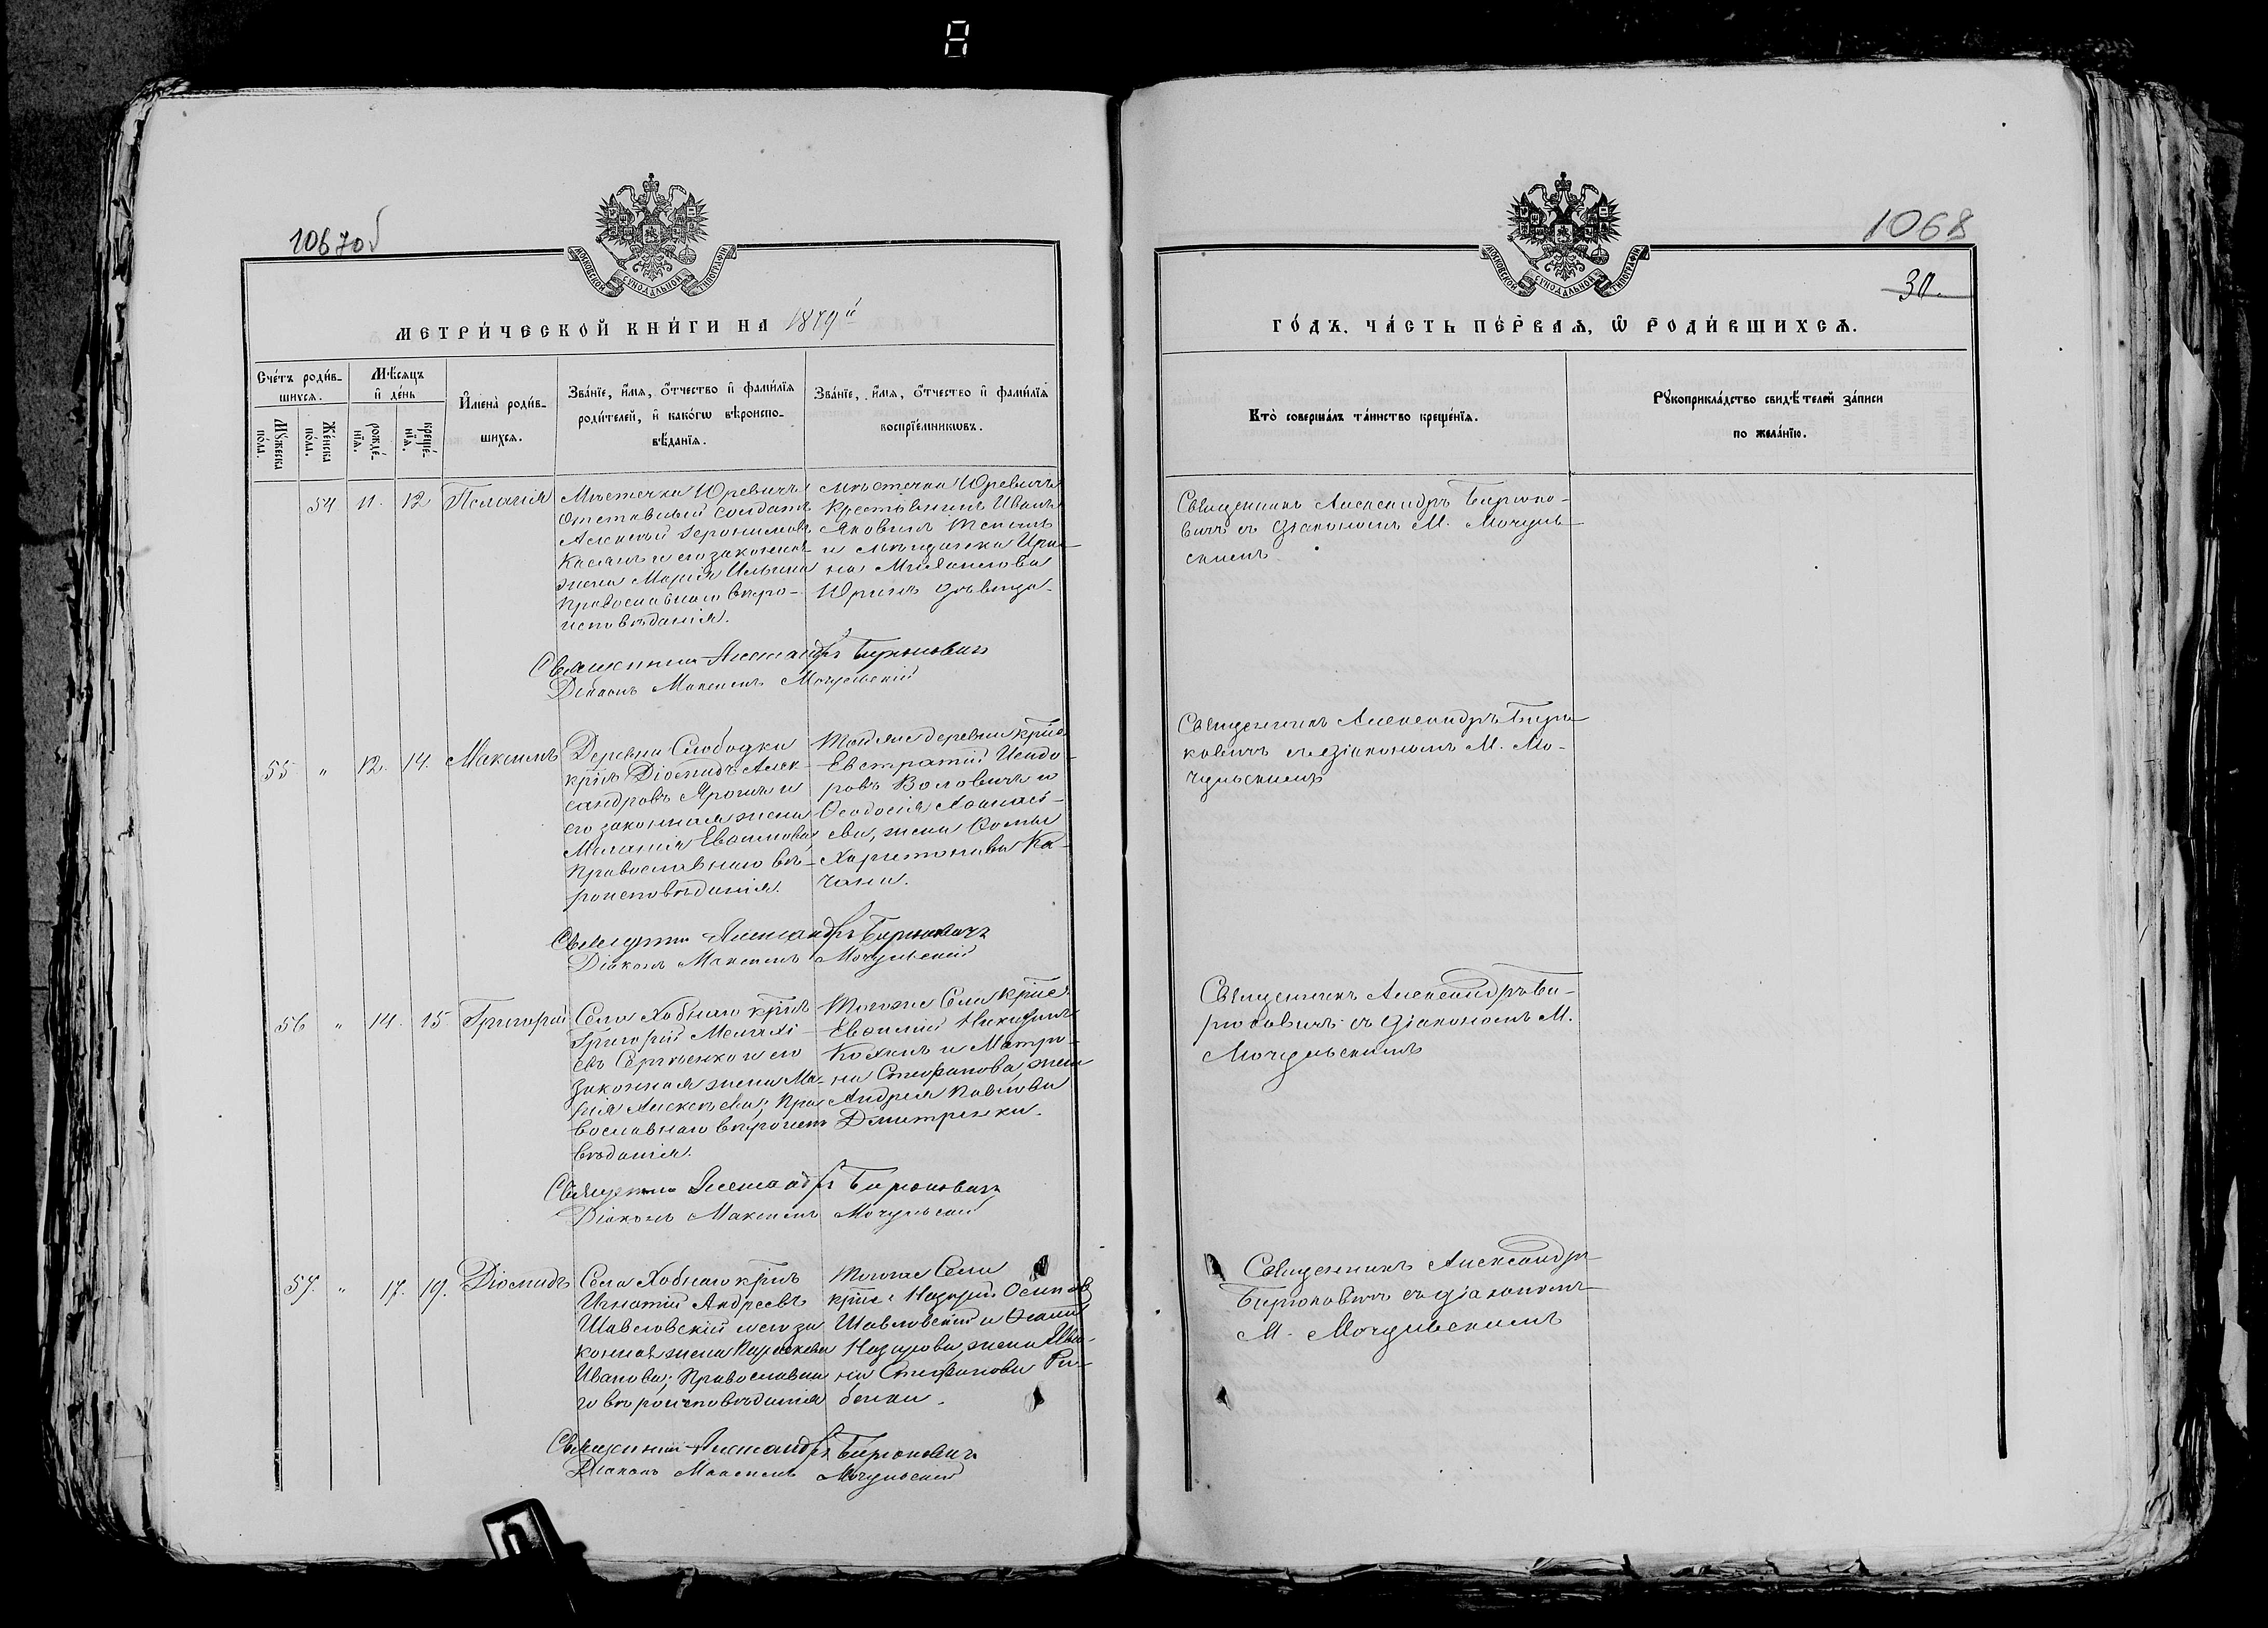 1067об
1068
30.
МОСКОВСКОЙ СѴНОДАЛЬНОЙ ТИПОГРАФІИ
МОСКОВСКОЙ СѴНОДАЛЬНОЙ ТИПОГРАФІИ
МЕТРИ́ЧЕСКОЙ КНИ́ГИ НА 1879й
ГО́ДЪ. ЧА́СТЬ ПЕ́РВАѦ, Ѡ҆ РОДИ́ВШИХСѦ.
Сче́тъ роди́в-
шихсѧ.
Мꙋ́жеска по́ла.
Же́нска по́ла.
Мѣ́сѧцъ
и҆ де́нь
рожде́-
нїѧ.
креще́-
нїѧ.
И҆мена̀ роди́в-
шихсѧ.
Зва́нїе, и҆́мѧ, ѻ҆́тчество и҆ фами́лїѧ
роди́телей, и҆ како́гѡ вѣроиспо-
вѣ́данїѧ.
Зва́нїе, и҆́мѧ, ѻ҆́тчество и҆ фами́лїѧ
воспрїе́мникѡвъ.
Кто̀ соверша́лъ та́инство креще́нїѧ.
Рꙋкоприкла́дство свидѣ́телей за́писи
по жела́нїю.
54 11. 12 Пелагія
Мѣстечка Юревичъ
Отставный солдатъ
Алексѣй Іеронимовъ
Касачъ и его законная
жена Марія Ильина
Православнаго вѣро-
исповѣданія.
Мѣстечка Юревичъ
Крестьянинъ Иванъ
Яковлевъ
и мѣщанка Ири-
на Михайлова
дѣвица.
Священникъ Александръ Бирюко-
вичъ съ діакономъ М. Мочуль-
скимъ
Священникъ Александръ Бирюковичъ
Діаконъ Максимъ Мочульскій
55 „ 12. 14. Максимъ
Деревни Слободки
кр̃инъ Діомидъ Алек-
сандровъ Ярошъ и
его законная жена
Меланія Евфимова,
Православнаго вѣ-
роисповѣданія.
Той же деревни кр̃не
Евстратій Исидо-
ровъ Воловичъ и
Ѳеодосія Аѳанась-
ева, жена Ѳомы
Харитонова Ка-
чана.
Священникъ Александръ Бирю-
ковичъ съ діакономъ М. Мо-
чульскимъ
Священникъ Александръ Бирюковичъ
Діаконъ Максимъ Мочульскій
56 „ 14. 15 Григорій
Села Хобнаго кр̃инъ
Григорій Мелахі-
евъ Сергіенко и его
законная жена Ма-
рія Алексѣева, Пра-
вославнаго вѣроиспо-
вѣданія.
Тогоже Села кр̃не
Евфимій Никифоровъ
и Матро-
на Стефанова, жена
Андрея Павлова
Дмитренки.
Священникъ Александръ Би-
рюковичъ съ діакономъ М.
Мочульскимъ
Священникъ Александръ Бирюковичъ
Діаконъ Максимъ Мочульскій
57. „ 17. 19. Діомидъ
Села Хобнаго кр̃инъ
Игнатій Андреевъ
Шавловскій и его за
конная жена Параскева
Иванова; Православна
го вѣроисповѣданія
Тогоже Села
кр̃не: Назарій Осиповъ
Шавловскій и
Назарова, жена Ива-
на Стефанова Ри-
бенки.
Священникъ Александръ
Бирюковичъ съ діакономъ
М. Мочульскимъ
Священникъ Александръ Бирюковичъ
Діаконъ Максимъ Мочульскій